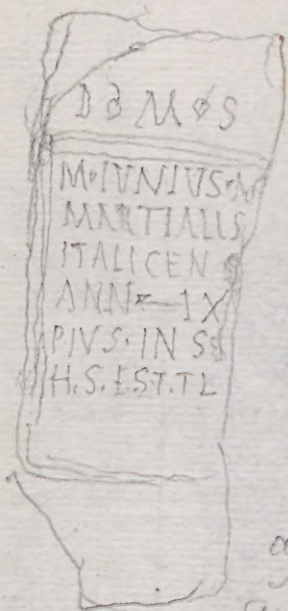 D M S
M·IVNIVS·M
MARTIALIS
ITALICEN
ANN IX
PIVS·IN S
H.S.E.S.T.T.L